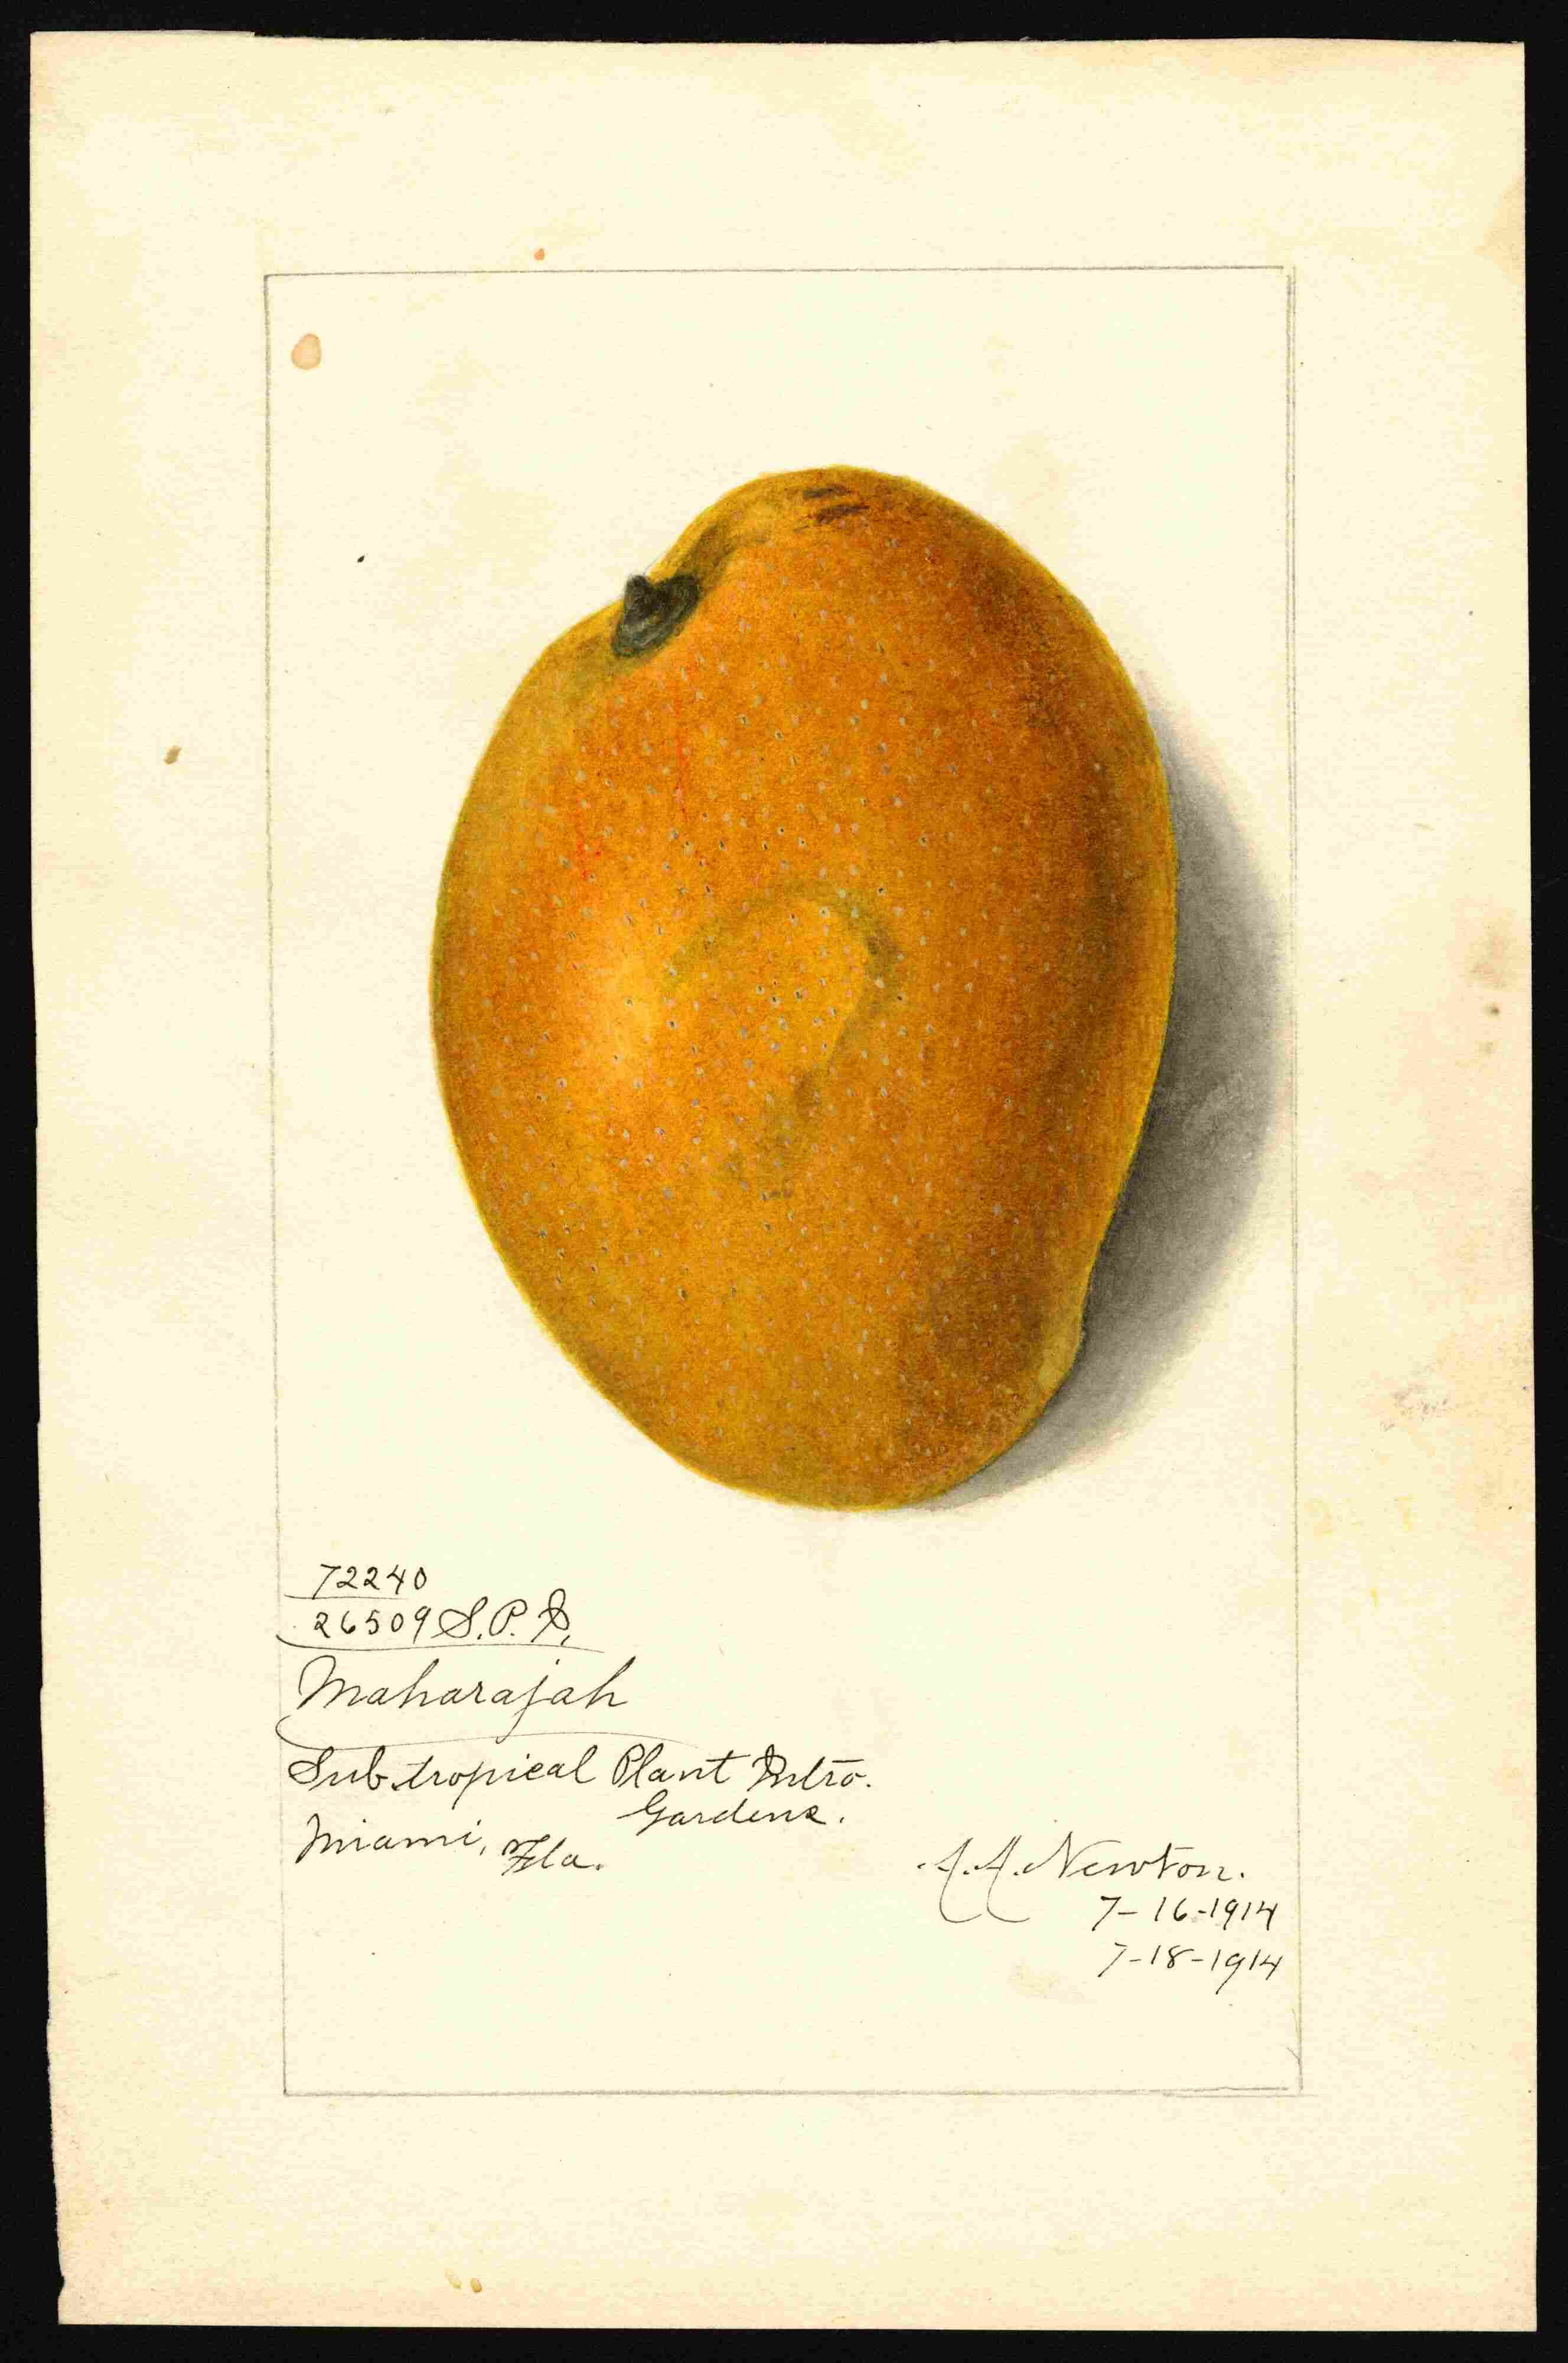 72240
26509 S.P.I.
Maharajah
Subtropical Plant Intro.
Gardens.
Miami, Fla.
A.A. Newton.
7-16-1914
7-18-1914